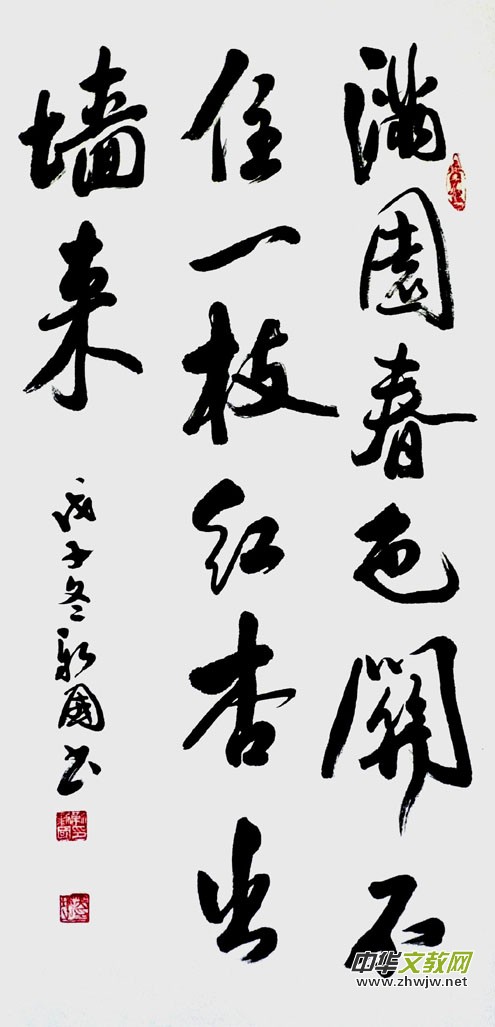 满園春色關不
住一枝红杏出
墙来
戊子冬新國书
中华文教网
www.zhwjw.net